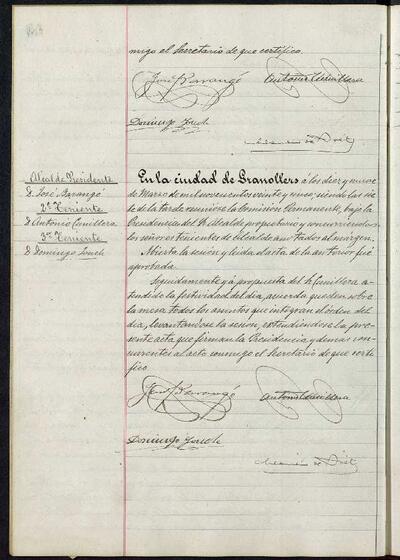 migo el Secretario de que certifico.
José Barangó Antonio Cumillera
Domingo Jonch
Alcalde Presidente
D. José Barangó
2º Teniente
D. Antonio Cumillera
3er Teniente
D. Domingo Jonch
En la ciudad de Granollers á los diez y nueve
de Marzo de mil novecientos veinte y uno; siendo las sie
te de la tarde reunióse la Comisión Permanente, bajo la
Presidencia del Sr. Alcalde propietario y concurriendo
los señores tenientes de Alcalde anotados al margen.
Abierta la sesión y leida el acta de la anterior fué
aprobada.
Seguidamente y á propuesta del Sr. Cumillera a
tendida la festividad del dia, acuerda queden sobre
la mesa todos los asuntos que integran el orden del
dia, levantandose la sesión, extendiendose la pre
sente acta que firman la Presidencia y demás con
currentes al acto conmigo el Secretario de que certi
fico
José Barangó Antonio Cumillera
Domingo Jonch